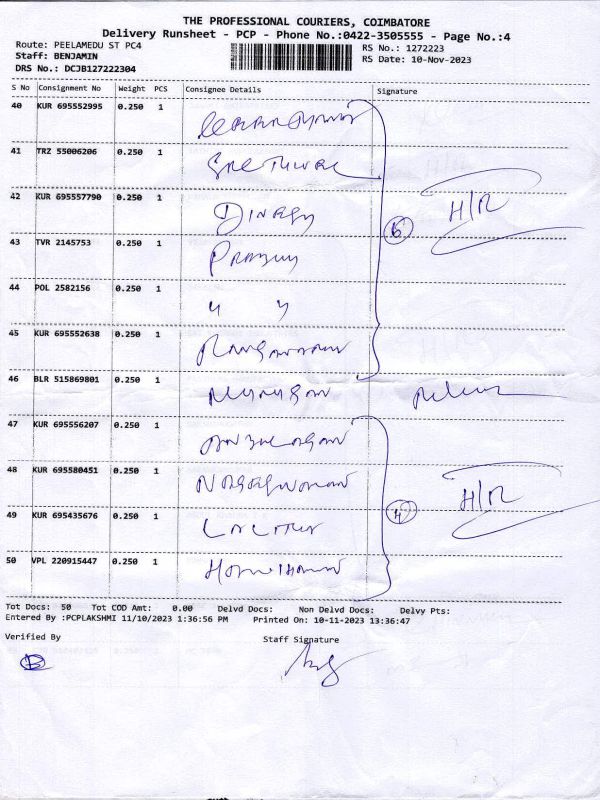 THE PROFESSIONAL COURIERS, COIMBATORE
Delivery Runsheet - PCP - Phone No.:0422-3505555 - Page No.:4
Route: PEELAMEDU ST PC4
RS No.: 1272223
Staff: BENJAMIN
RS Date: 10-Nov-2023
DRS No.: DCJB127222304
S No Consignment No Weight PCS Consignee Details Signature
40 KUR 695552995 0.250 1
41 TRZ 55006206 0.250 1
42 KUR 695557790 0.250 1 DINESH
6 H/R
43 TVR 2145753 0.250 1 PRABHU
44 POL 2582156 0.250 1 " "
45 KUR 695552638 0.250 1
46 BLR 515869801 0.250 1 MURUGAN
47 KUR 695556207 0.250 1
48 KUR 695580451 0.250 1
4 H/R
49 KUR 695435676 0.250 1 LALITHA
50 VPL 220915447 0.250 1
Tot Docs: 50 Tot COD Amt: 0.00 Delvd Docs: Non Delvd Docs: Delvy Pts:
Entered By :PCPLAKSHMI 11/10/2023 1:36:56 PM Printed On: 10-11-2023 13:36:47
Verified By Staff Signature
B